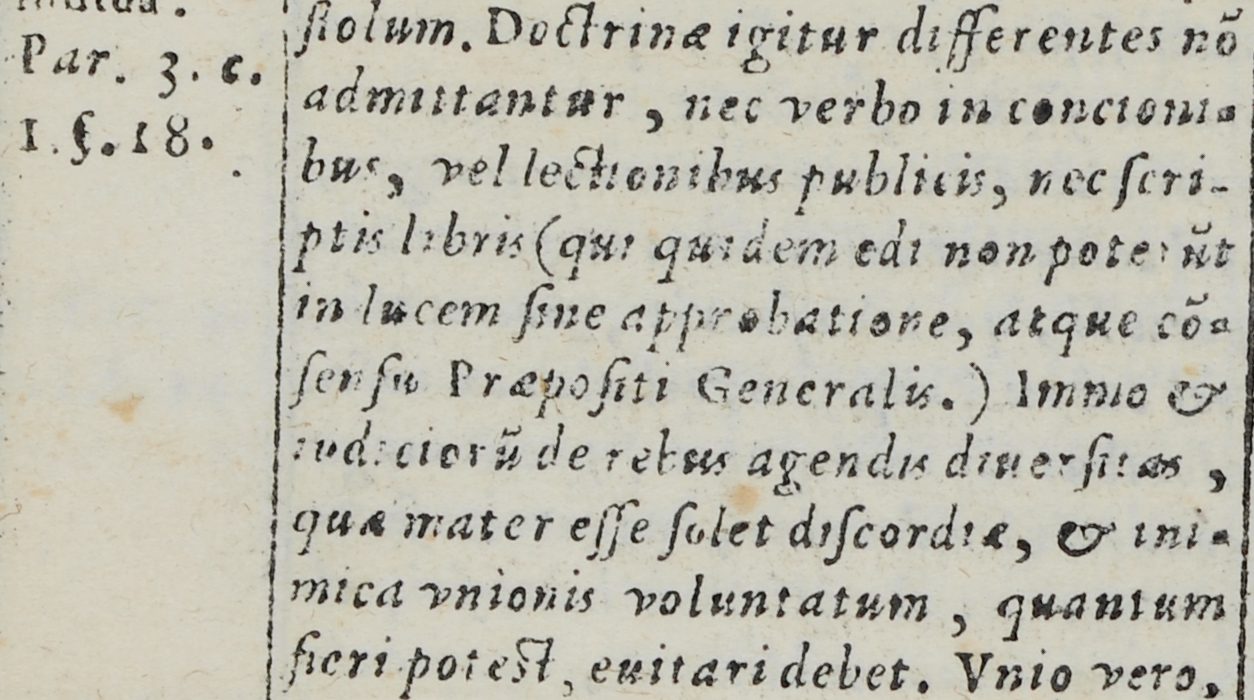 Par. 3. c.
1. §. 18.
ſtolum. Doctrinæ igitur differentes nõ
admittantur, nec verbo in concioni-
bus, vel lectionibus publicis, nec ſcri-
ptis libris (qui quidem edi non poterũt
in lucem ſine approbatione, atque cõ-
ſenſu Præpoſiti Generalis.) Immo &
iudiciorũ de rebus agendis diuerſitas,
quæ mater eſſe ſolet diſcordiæ, & ini-
mica vnionis voluntatum, quantum
fieri poteſt, euitari debet. Vnio vero,